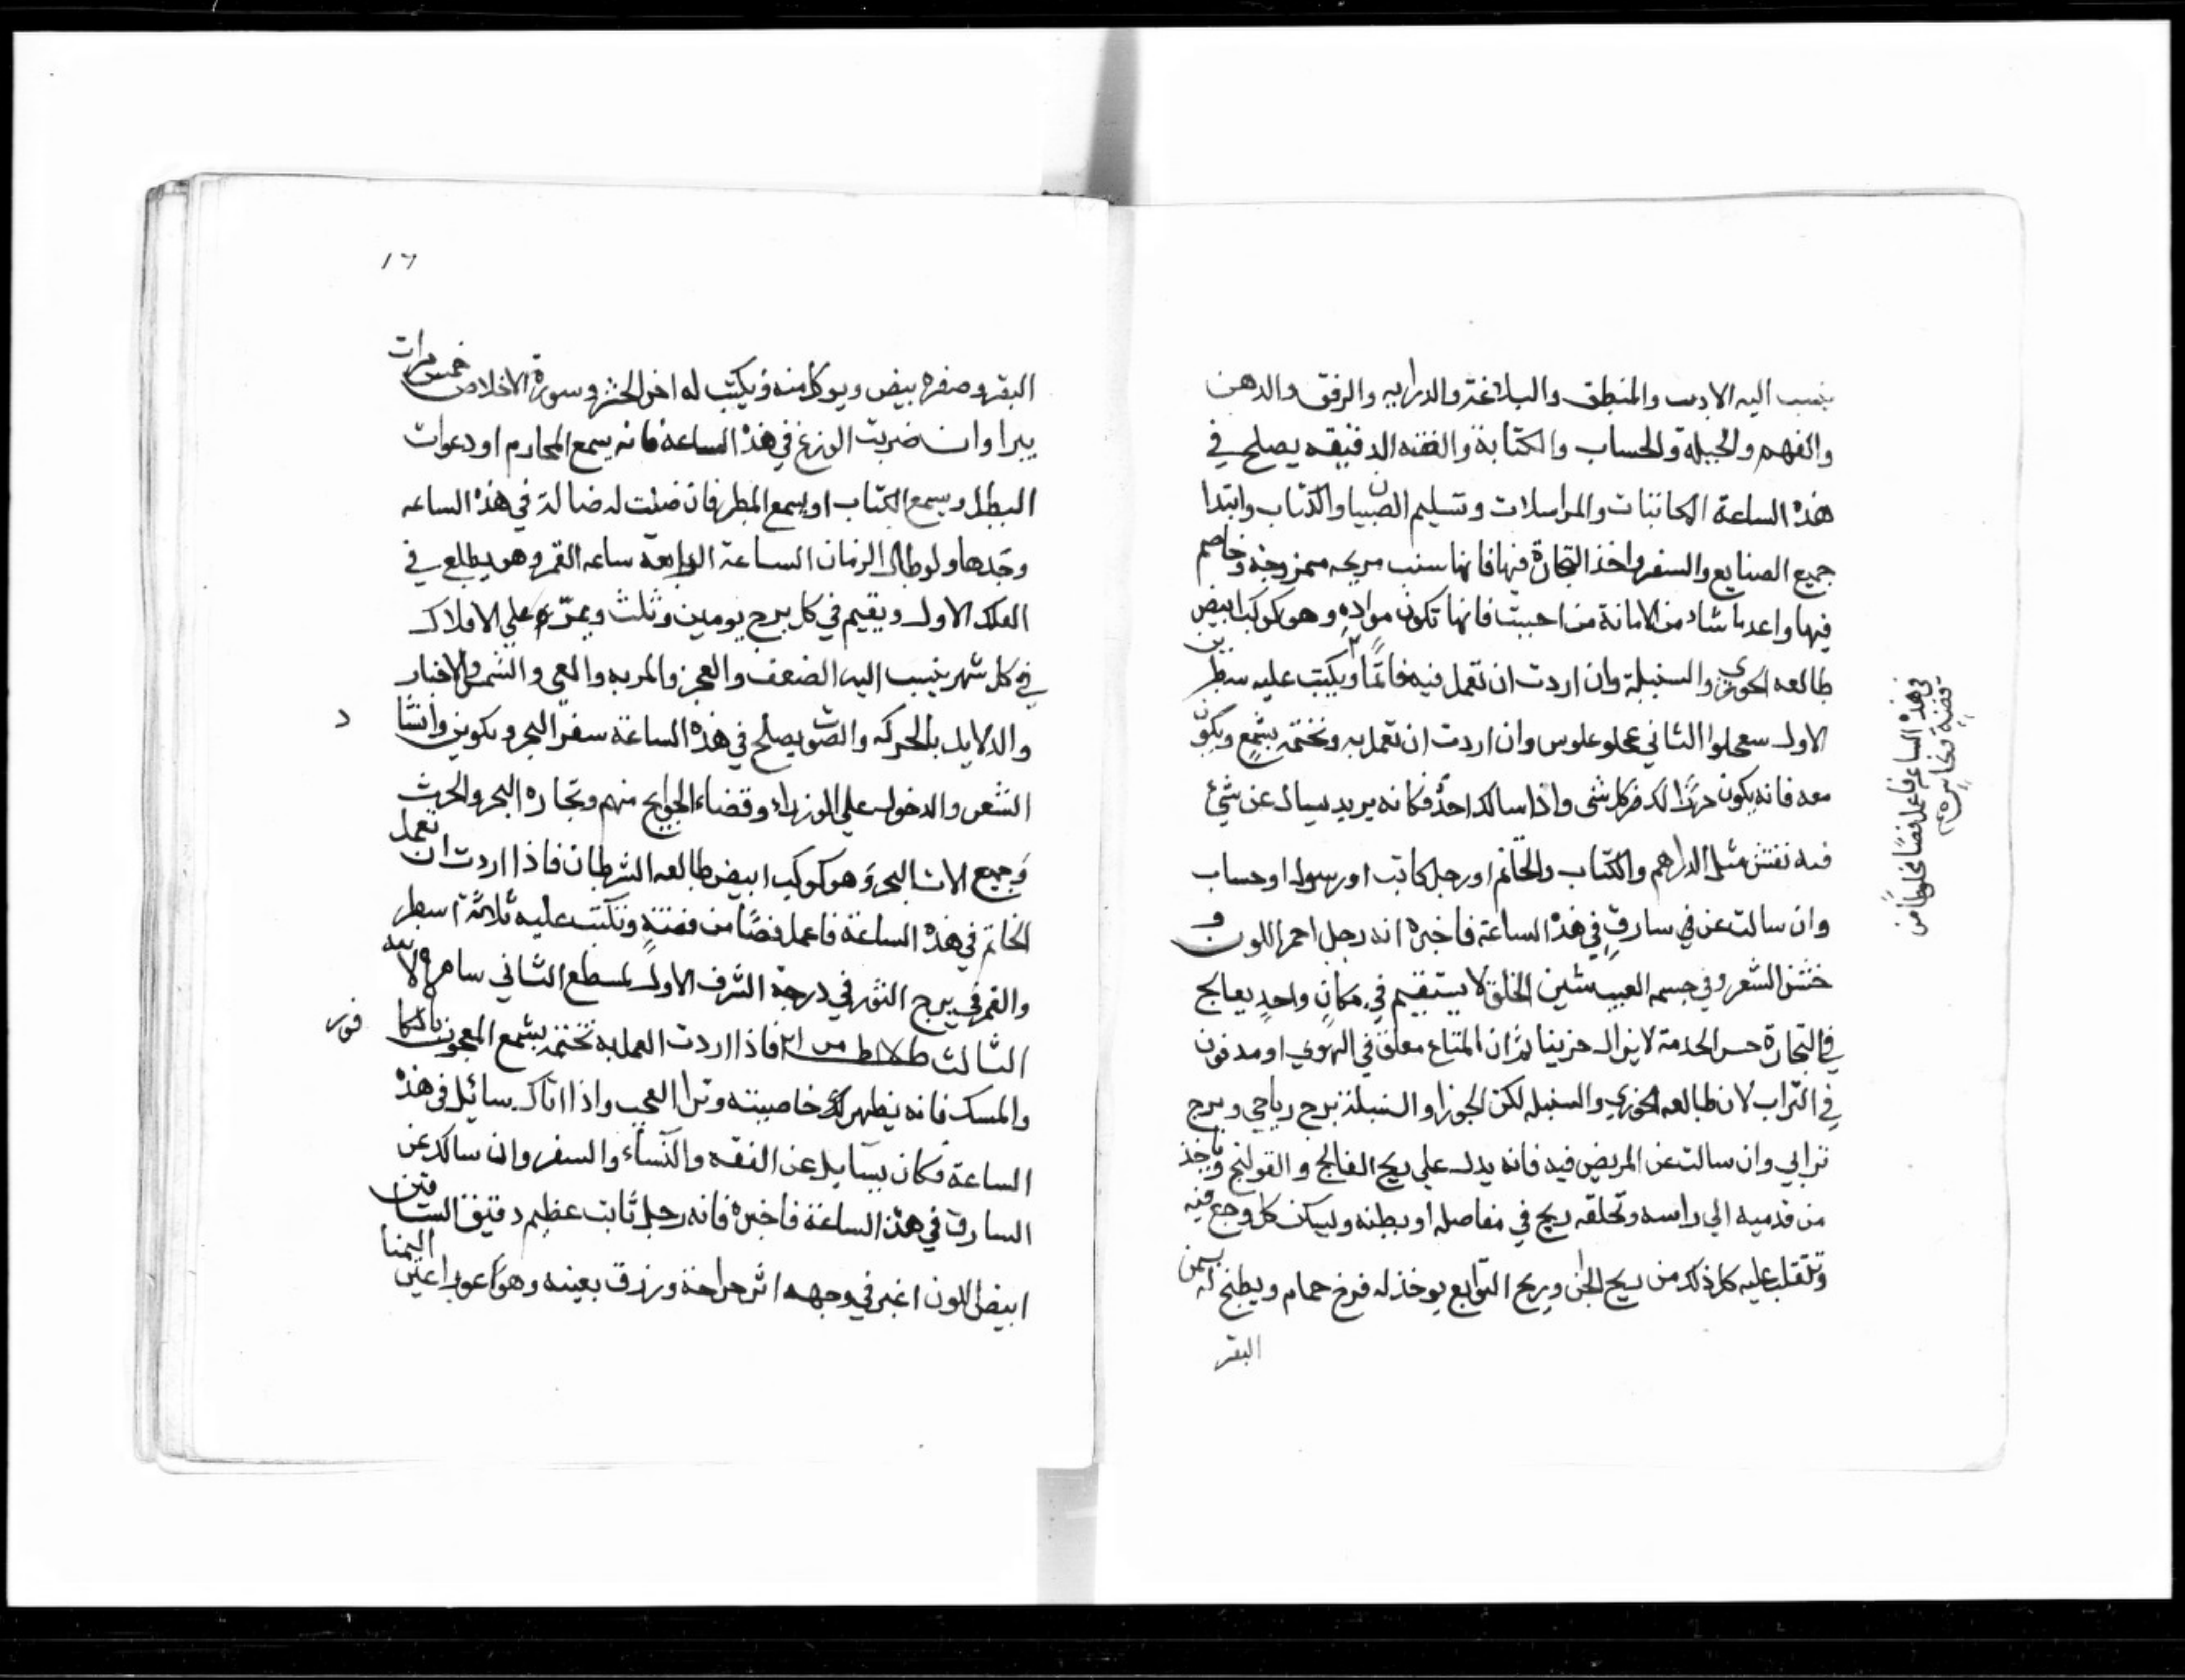 ينسب اليه الادب والمنطق والبلاغة والدرايه والرفق والدهن
والفهم والحيله والحساب والكتابة والفقه الدقيقه يصلح في
هذه الساعة المكاتبات والمراسلات وتسليم الصبيان والكتاب وابتدا
جميع الصنايع والسفر واخذ التجارة فيها فانها سنب مريحه ممزوجة وخاصم
فيها واعد ما شاد من الامانة من احببت فانها تكون مواده وهو كوكب ابيض
طالعه الجوزي والسنبلة وان اردت ان تعمل فيه خاتما ويكتب عليه سطرين
الاول سعحلوا الثاني عحلو علوس وان اردت ان تعمل به وتختمه بشمع ويكون
معه فانه يكون حرزا لك من كل شي واذا سالك احد فكانه يريد يسال عن شئ
فيه نقش مثل الدراهم والكتاب والخاتم او رجل كاتب او رسول او حساب
وان سالت عن في سارق في هذه الساعة فاخبره انه رجل احمر اللون و
خشن الشعر وفي جسمه العيب شين الخلق لا يستقيم في مكان واحد يعالج
في التجارة حسن الخدمة لا يزال حزينا ثم ان المتاع معلق في الهوي او مدفون
في التراب لان طالعه الجوزي والسنبله لكن الجوزا والسنبلة برج رياحي وبرج
ترابي وان سالت عن المريض فيه فانه يدل علي ريح الفالج والقولنج وياخذ
من قدميه الي راسه وتحلقه ريح في مفاصله او بطنه وليسكن كل وجع فيه
وتلقلب عليه كل ذلك من ريح الجن وريح التوابع يوخذ له فرخ حمام ويطبخ له بسمن
البقر
في هذه الساعه فاعمل فصا مخلوطا من
فضة
١٦
البقر وصفره بيض ويوكل منه ويكتب له اخر الحشر وسورة الاخلاص خمس مرات
يبرا وان ضربت الوزغ في هذه الساعة فانه يسمع المحارم او دعوات
البطل ويسمع الكتاب او يسمع المطر فان ضلت له ضالة في هذه الساعه
وجدها ولو طال الزمان الساعة الرابعة ساعه القمر وهو يطلع في
الفلك الاول ويقيم في كل برج يومين وثلث ويمر علي الافلاك
في كل شهر ينسب اليه الضعف والعجز والمريه والعي والشمل والاخبار
والدلايل بالحركه والصوت يصلح في هذه الساعة سفر البحر وتكوين وانشا
د
الشعر والدخول علي الوزراء وقضاء الحوايج منهم وتجاره البحر والحرث
وجميع الات البحر وهو كوكب ابيض طالعه السرطان فاذا اردت ان تعمل
الخاتم في هذه الساعة فاعمل فصا من فضة وتكتب عليه ثلاثة اسطر
والقمر في برج الثور في درجة الشرف الاول لمسطع الثاني
الثالث فاذا اردت العمل به تختمه بشمع المعجون بالكا
فور
والمسك فانه يظهر لك خاصيته وترا العجب واذا اتاك سائل في هذه
الساعة فكان يسايل عن الفقه والنساء والسفر وان سالك عن
السارق في هذه الساعة فاخبره فانه رجل ثابت عظيم دقيق الساقين
ابيض اللون اغبر في وجهه اثر جراحة وزرق بعينه وهو اعور اعين اليمنا